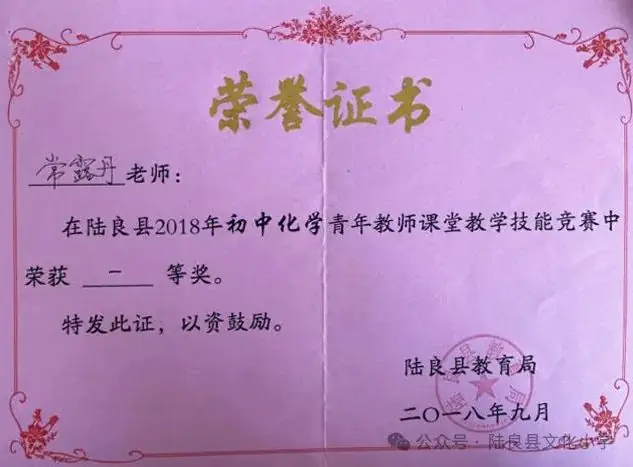 荣誉证书
常露丹老师：
在陆良县2018年初中化学青年教师课堂教学技能竞赛中
荣获 一 等奖。
特发此证，以资鼓励。
陆良县教育局
二〇一八年九月
公众号·陆良县文化小学